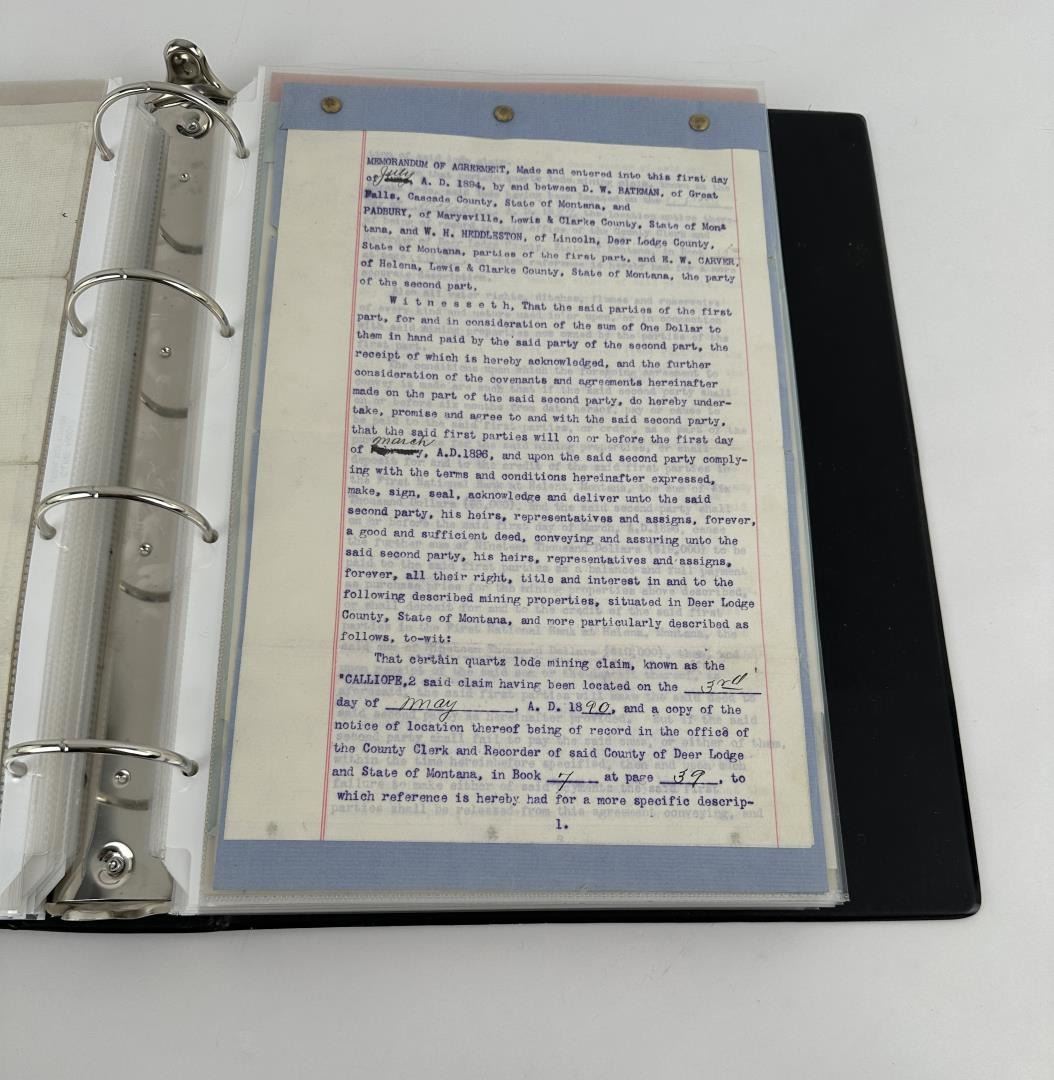 MEMORANDUM OF AGREEMENT, Made and entered into this first day
of July, A. D. 1894, by and between D. W. BATEMAN, of Great
Falls, Cascade County, State of Montana, and
PADBURY, of Marysville, Lewis & Clarke County, State of Mon-
tana, and W. H. HEDDLESTON, of Lincoln, Deer Lodge County,
State of Montana, parties of the first part, and E. W. CARVER,
of Helena, Lewis & Clarke County, State of Montana, the party
of the second part,
W i t n e s s e t h, That the said parties of the first
part, for and in consideration of the sum of One Dollar to
them in hand paid by the said party of the second part, the
receipt of which is hereby acknowledged, and the further
consideration of the covenants and agreements hereinafter
made on the part of the said second party, do hereby under-
take, promise and agree to and with the said second party,
that the said first parties will on or before the first day
of march, A.D.1896, and upon the said second party comply-
ing with the terms and conditions hereinafter expressed,
make, sign, seal, acknowledge and deliver unto the said
second party, his heirs, representatives and assigns, forever,
a good and sufficient deed, conveying and assuring unto the
said second party, his heirs, representatives and assigns,
forever, all their right, title and interest in and to the
following described mining properties, situated in Deer Lodge
County, State of Montana, and more particularly described as
follows, to-wit:
That certain quartz lode mining claim, known as the
"CALLIOPE,2 said claim having been located on the 3rd
day of May, A. D. 1890, and a copy of the
notice of location thereof being of record in the office of
the County Clerk and Recorder of said County of Deer Lodge
and State of Montana, in Book 7 at page 39, to
which reference is hereby had for a more specific descrip-
1.